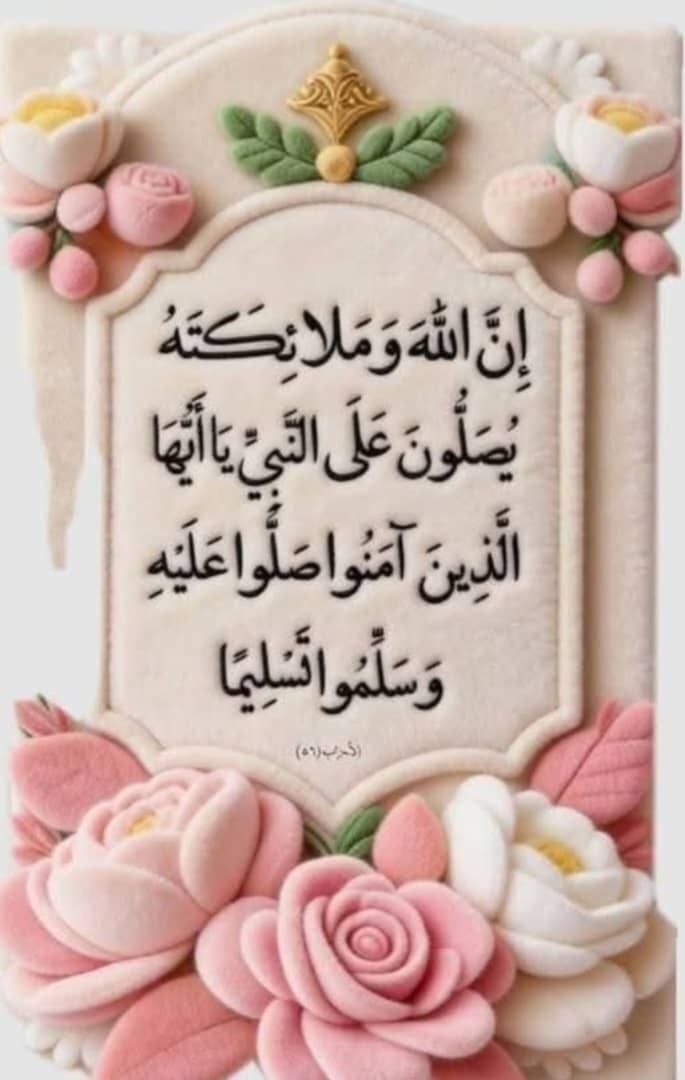 إِنَّ اللَّهَ وَمَلائِكَتَهُ
يُصَلُّونَ عَلَى النَّبِيِّ يَا أَيُّهَا
الَّذِينَ آمَنُوا صَلُّوا عَلَيْهِ
وَسَلِّمُوا تَسْلِيمًا
الأحزاب (٥٦)